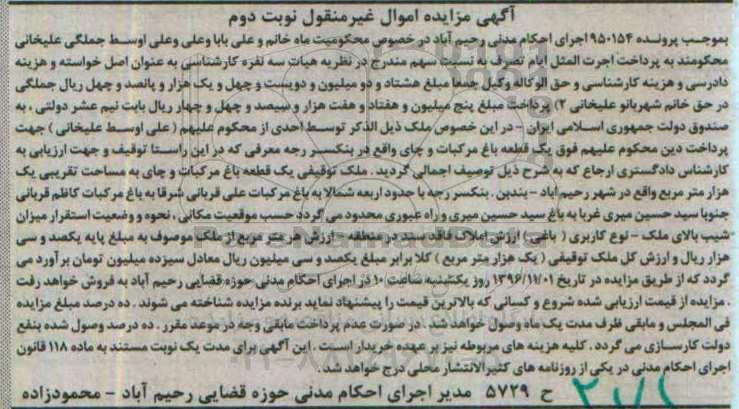 آگهی مزایده اموال غیرمنقول نوبت دوم
بموجب پرونده ۹۵۰۱۵۴ اجرای احکام مدنی رحیم آباد در خصوص محکومیت ماه خانم و علی بابا وعلی وعلی اوسط جملگی علیخانی
محکومند به پرداخت اجرت المثل ایام تصرف به نسبت سهم مندرج در نظریه هیات سه نفره کارشناسی به عنوان اصل خواسته و هزینه
دادرسی و هزینه کارشناسی و حق الوکاله وکیل جمعا مبلغ هشتاد و دو میلیون و دویست و چهل و یک هزار و پانصد و چهل ریال جملگی
در حق خانم شهربانو علیخانی ۲) پرداخت مبلغ پنج میلیون و هفتاد و هفت هزار و سیصد و چهل و چهار ریال بابت نیم عشر دولتی ، به
صندوق دولت جمهوری اسلامی ایران – در این خصوص ملک ذیل الذکر توسط احدی از محکوم علیهم ( علی اوسط علیخانی ) جهت
پرداخت دین محکوم علیهم فوق یک قطعه باغ مرکبات و چای واقع در بنکسر رجه معرفی که در این راستا توقیف و جهت ارزیابی به
کارشناس دادگستری ارجاع که به شرح ذیل توصیف اجمالی گردید . ملک توقیفی یک قطعه باغ مرکبات و چای به مساحت تقریبی یک
هزار متر مربع واقع در شهر رحیم اباد – بندبن . بنکسر رجه با حدود اربعه شمالا به باغ مرکبات علی قربانی شرقا به باغ مرکبات کاظم قربانی
جنوبا سید حسین میری غربا به باغ سید حسین میری و راه عبوری محدود می گردد حسب موقعیت مکانی ، نحوه و وضعیت استقرار میزان
شیب بالای ملک – نوع کاربری ( باغی ) ارزش املاک فاقد سند در منطقه – ارزش هر متر مربع از ملک موصوف به مبلغ پایه یکصد و سی
هزار ریال و ارزش کل ملک توقیفی ( یک هزار متر مربع ) کلا برابر مبلغ یکصد و سی میلیون ریال معادل سیزده میلیون تومان بر آورد می
گردد که از طریق مزایده در تاریخ ۱۳۹۶/۱۱/۰۱ روز یکشنبه ساعت ۱۰ در اجرای احکام مدنی حوزه قضایی رحیم آباد به فروش خواهد رفت
. مزایده از قیمت ارزیابی شده شروع و کسانی که بالاترین قیمت را پیشنهاد نماید برنده مزایده شناخته می شوند . ده درصد مبلغ مزایده
فی المجلس و مابقی ظرف مدت یک ماه وصول خواهد شد . در صورت عدم پرداخت مابقی وجه در موعد مقرر . ده درصد وصول شده بنفع
دولت کارسازی می گردد . کلیه هزینه های مربوطه نیز بر عهده خریدار است . این آگهی برای مدت یک نوبت مستند به ماده ۱۱۸ قانون
اجرای احکام مدنی در یکی از روزنامه های کثیرالانتشار محلی درج خواهد شد .
ح ۵۷۲۹ مدیر اجرای احکام مدنی حوزه قضایی رحیم آباد – محمودزاده